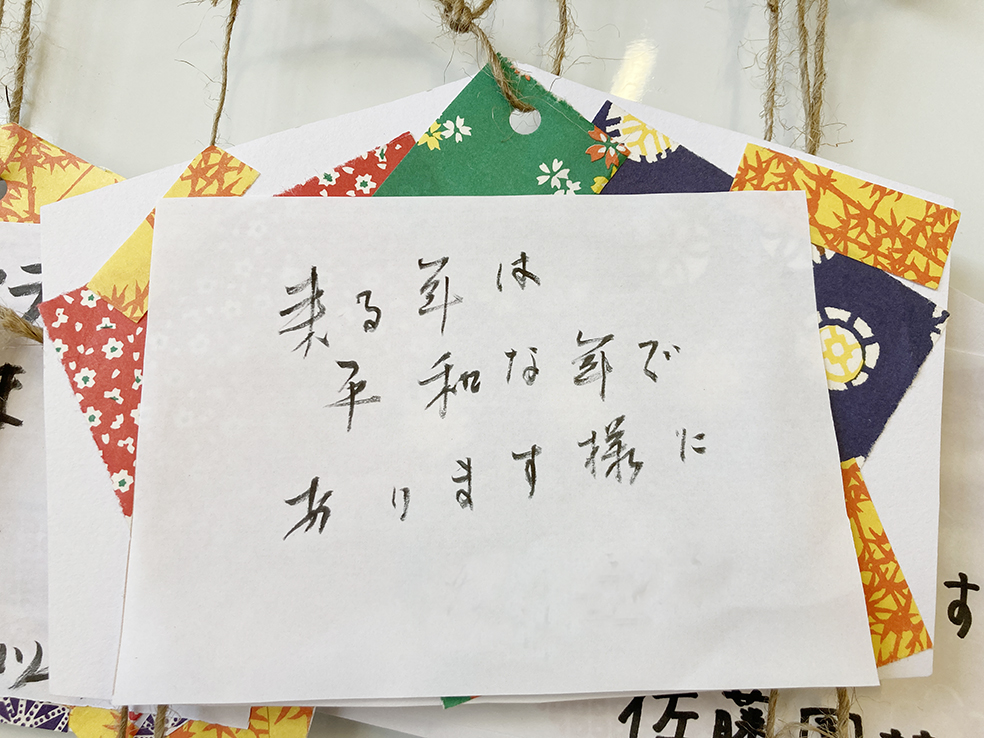 来る年は
平和な年で
あります様に
す
佐藤